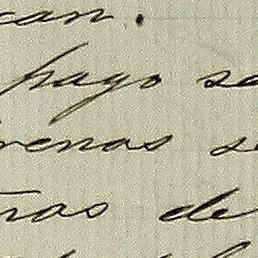 can.
pago se
renas se
ras de